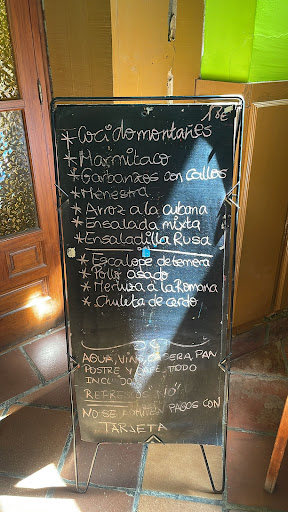 18€
* Cocido montañes
* Marmitaco
* Garbanzos con callos
* Menestra
* Arroz a la cubana
* Ensalada mixta
* Ensaladilla Rusa
* Escalope de ternera
* Pollo asado
* Merluza a la Romana
* Chuleta de cerdo
AGUA, VINO, CASERA, PAN
POSTRE Y CAFE, TODO
INCLUIDO
NO SE ADMITEN PAGOS CON
TARJETA